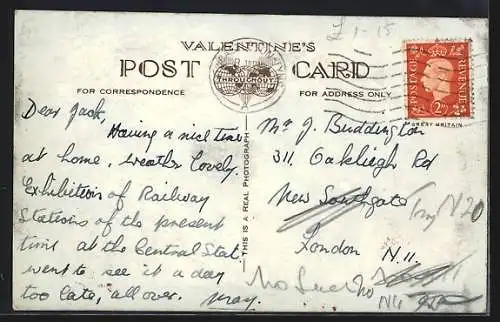 £1-15
VALENTINE'S
POST CARD
THROUGHOUT
FOR CORRESPONDENCE
FOR ADDRESS ONLY
POSTAGE REVENUE
2D
GREAT BRITAIN
THIS IS A REAL PHOTOGRAPH
Dear Jack,
Having a nice time
at home, weather lovely.
Exhibition of Railway
Stations of the present
time at the Central Stat.
went to see it a day
too late, all over. May.
Mr J. Buddington
311, Oakleigh Rd
New Southgate
Try N20
London N.11.
No Such No
N11